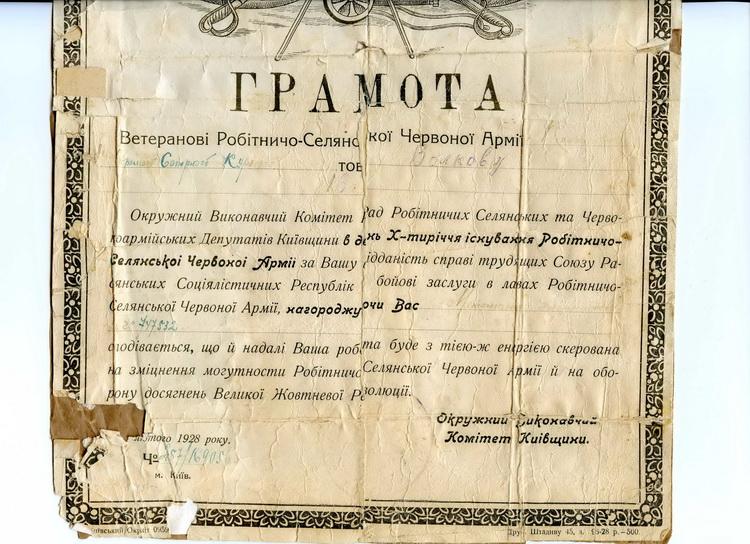 ГРАМОТА
Ветеранові Робітничо-Селянської Червоної Армії
тов Волкову
Окружний Виконавчий Комітет Рад Робітничих Селянських та Черво-
ноармійських Депутатів Київщини в день Х-тиріччя існування Робітничо-
Селянської Червоної Армії за Вашу відданість справі трудящих Союзу Ра-
дянських Соціялістичних Республік бойові заслуги в лавах Робітничо-
Селянської Червоної Армії, нагороджуючи Вас
сподівається, що й надалі Ваша робота буде з тією-ж енергією скерована
на зміцнення могутности Робітничо Селянської Червоної Армії й на обо-
рону досягнень Великої Жовтневої Революції.
Окружний Виконавчий
Комітет Київщини.
лютого 1928 року.
Ч
м. Київ.
Київський Окрліт
Друк. Штадиву 45, з. 98-28 р.–500.